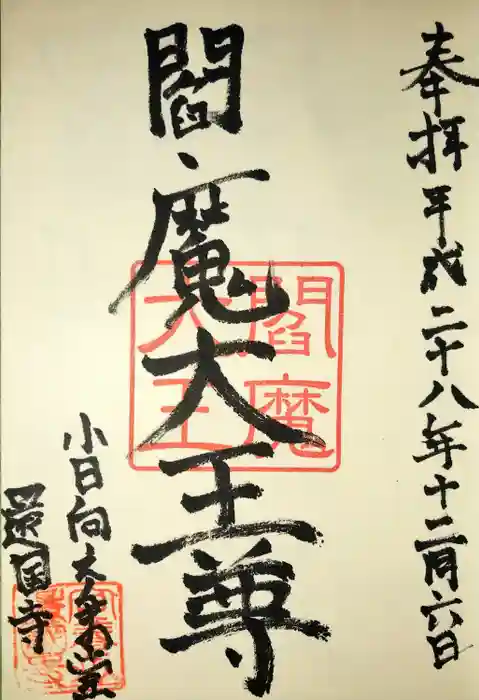 奉拝平成二十八年十二月六日
閻魔大王尊
閻魔大王
小日向大乗山
還国寺